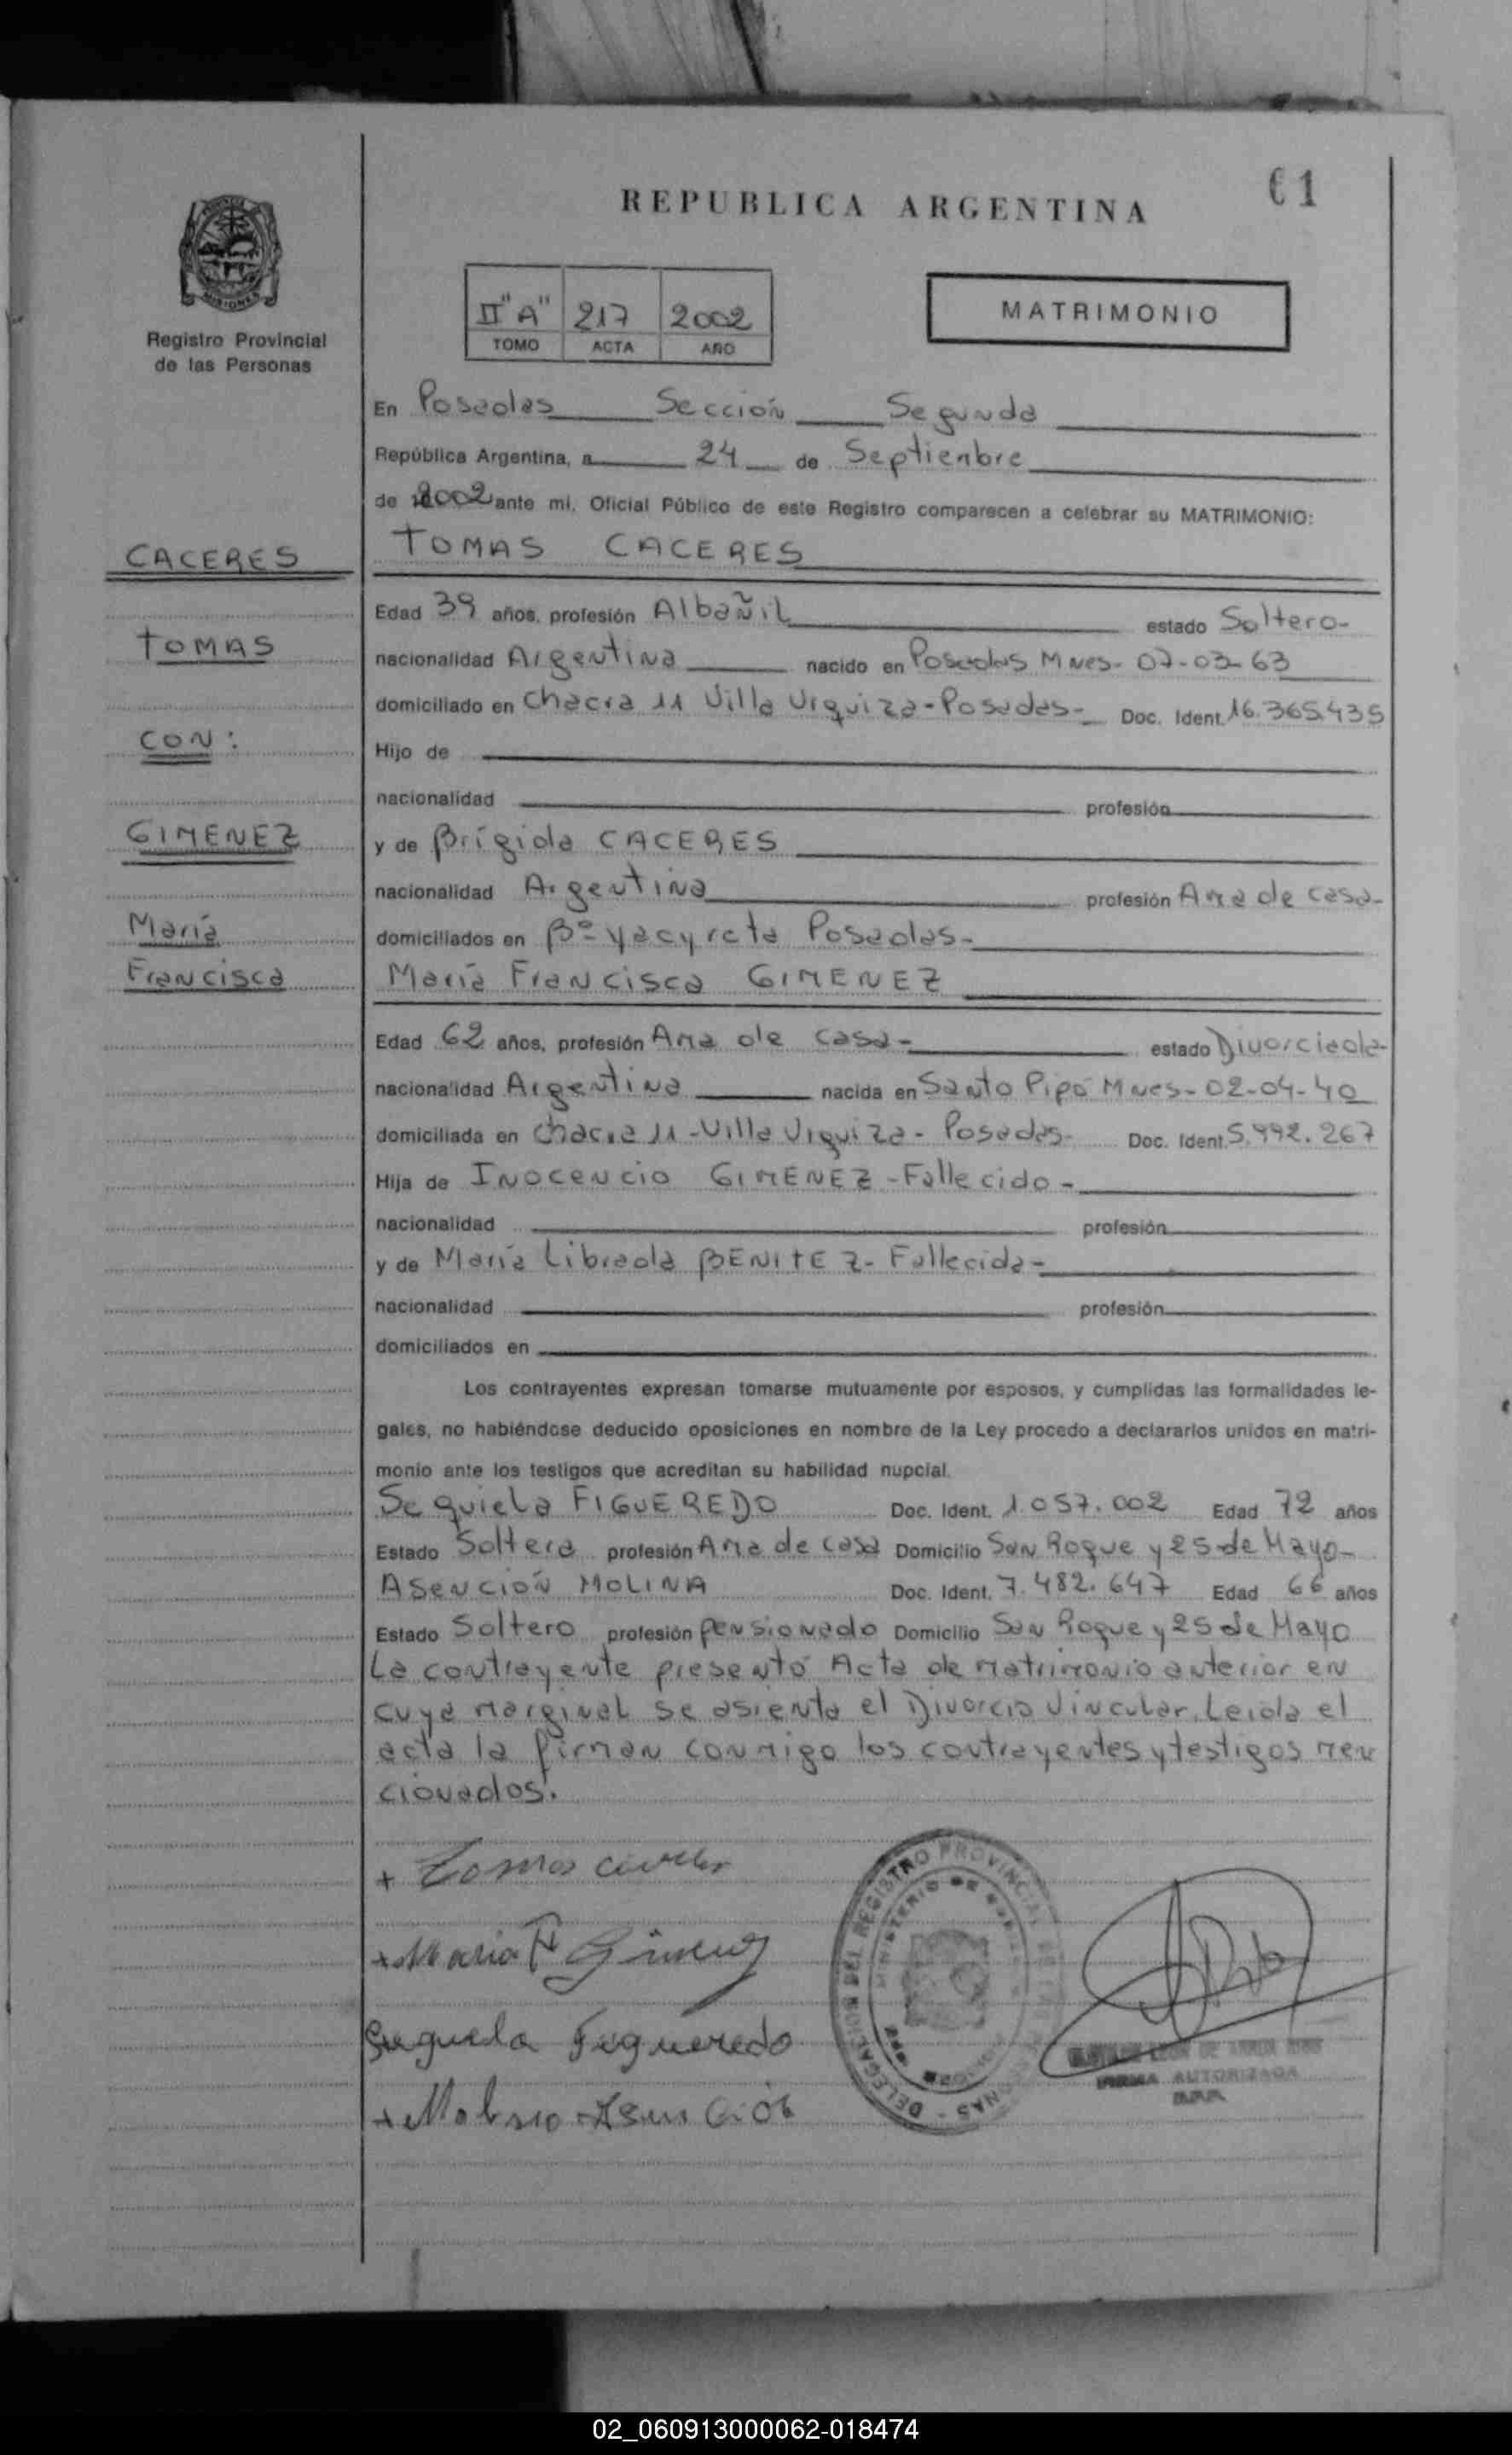 61
REPUBLICA ARGENTINA
MISIONES
Registro Provincial
de las Personas
II "A" 217 2002
TOMO ACTA AÑO
MATRIMONIO
En Posadas Sección Segunda
República Argentina, a 24 de Septiembre
de 2002 ante mi, Oficial Público de este Registro comparecen a celebrar su MATRIMONIO:
CACERES
TOMAS CACERES
Edad 39 años, profesión Albañil estado Soltero-
TOMAS
nacionalidad Argentina nacido en Posadas Mnes- 07-03-63
domiciliado en Chacra 11 Villa Urquiza-Posadas- Doc. Ident. 16.365.435
CON:
Hijo de
nacionalidad profesión
GIMENEZ
y de Brígida CACERES
nacionalidad Argentina profesión Ama de casa-
María
domiciliados en Bº- Yacyreta Posadas-
Francisca
María Francisca GIMENEZ
Edad 62 años, profesión Ama de casa- estado Divorciada-
nacionalidad Argentina nacida en Santo Pipó Mnes- 02-04-40
domiciliada en Chacra 11 -Villa Urquiza- Posadas- Doc. Ident. 5.992.267
Hija de Inocencio GIMENEZ -Fallecido-
nacionalidad profesión
y de María Librada BENITEZ- Fallecida-
nacionalidad profesión
domiciliados en
Los contrayentes expresan tomarse mutuamente por esposos, y cumplidas las formalidades le-
gales, no habiéndose deducido oposiciones en nombre de la Ley procedo a declararlos unidos en matri-
monio ante los testigos que acreditan su habilidad nupcial.
Sequiela FIGUEREDO Doc. Ident. 1.057.002 Edad 72 años
Estado Soltera profesión Ama de casa Domicilio San Roque y 25 de Mayo-
Asención MOLINA Doc. Ident. 7.482.647 Edad 66 años
Estado Soltero profesión pensionado Domicilio San Roque y 25 de Mayo
La contrayente presentó Acta de matrimonio anterior en
cuya marginal se asienta el Divorcio Vincular. Leida el
acta la firman conmigo los contrayentes y testigos men
cionados.
+ Tomas
+ Maria F Gimenez
Figueredo
+
DELEGACION DEL REGISTRO PROVINCIAL
MINISTERIO DE
FIRMA AUTORIZADA
02_060913000062-018474